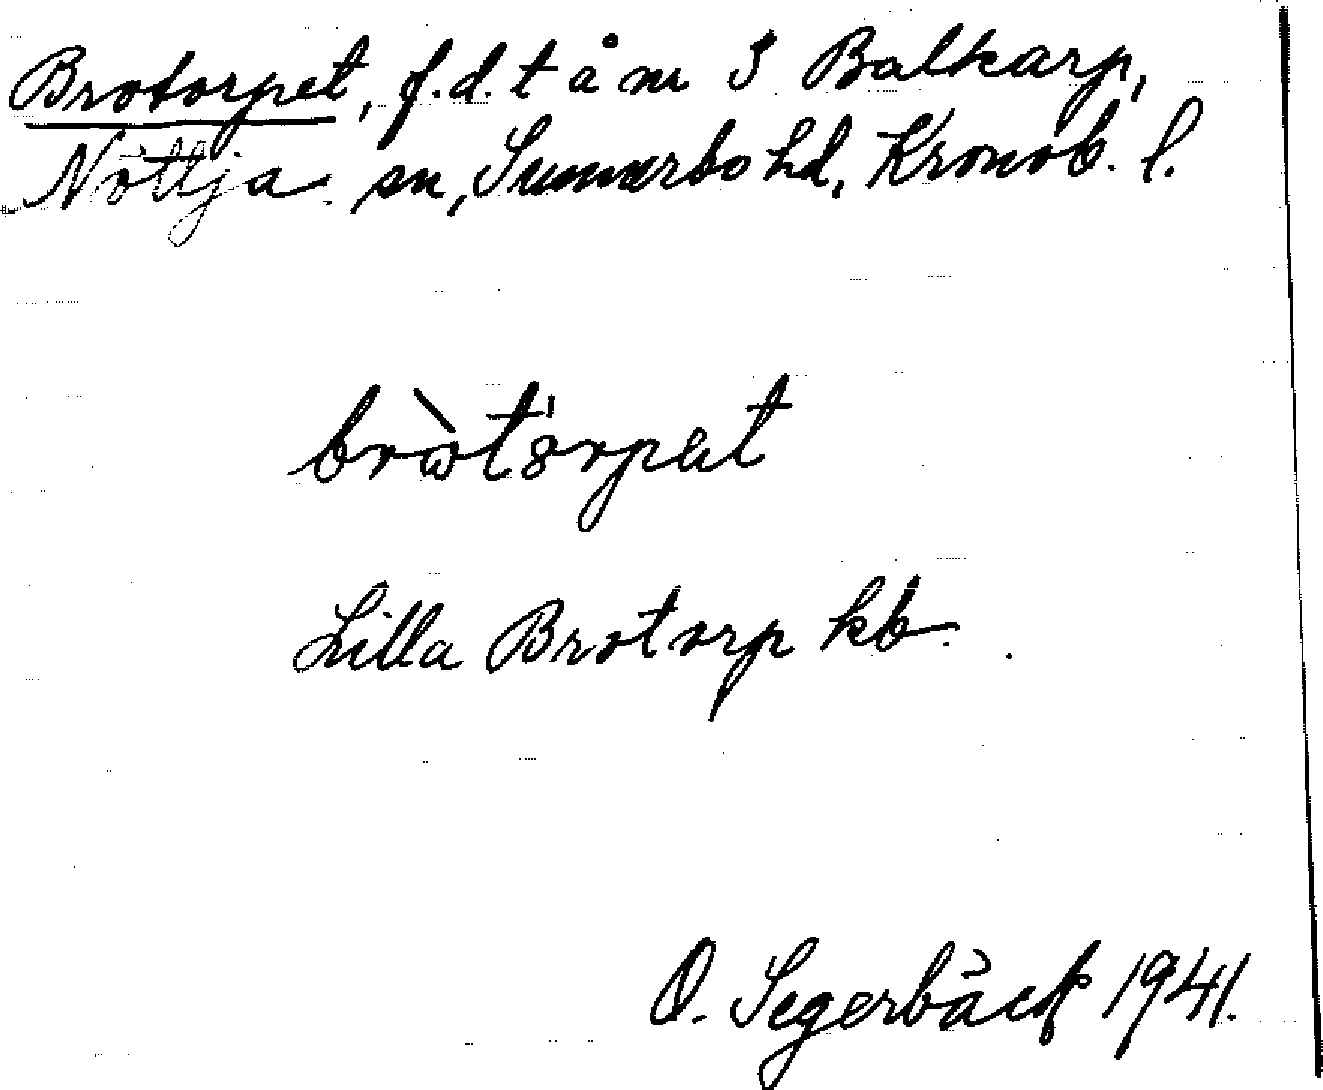 Brotorpet, f.d. t å nr 3 Balkarp,
Nöttja sn, Sunnerbo hd, Kronob. l.
Lilla Brotorp kb.
O. Segerbäck 1941.